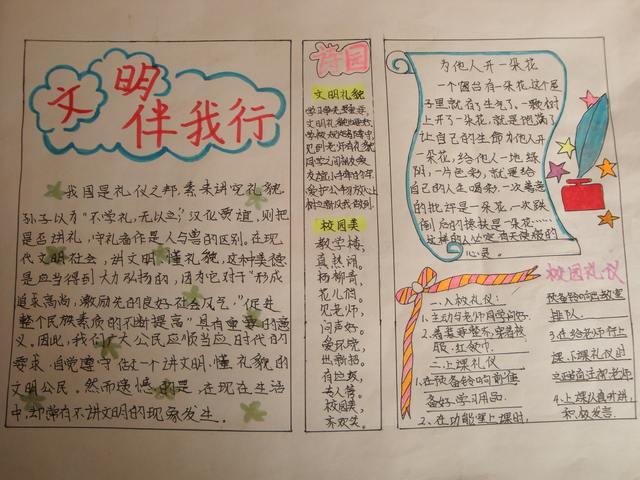 文明
伴我行
我国是礼仪之邦,素来讲究礼貌,
孔子以为"不学礼,无以立",汉化贾谊,则把
是否讲礼,守礼者作是人与兽的区别。在现
代文明社会,讲文明,懂礼貌,这种美德
是应当得到大力弘扬的,因为它对于"形成
追求高尚,激励先的良好社会风气","促进
整个民族素质的不断提高"具有重要的意
义。因此,我们广大公民应顺当应时代的
要求,自觉遵守
讲文明,懂礼貌的
文明公民。然而遗憾的是,在现在生活
中,却常有不讲文明的现象发生。
诗园
文明礼貌
见到老师有礼貌
校园美
教学楼,
真热闹。
杨柳青,
花儿俏。
见老师,
问声好。
爱环境,
校园美,
齐欢笑。
为他人开一朵花
一个窗台有一朵花,这个屋
子里就有了生气了,一颗树
上开了一朵花,就是饱满了
让自己的生命为他人开
一朵花,给他人一地绿
阴,一片色彩,就是给
自己的人生喝彩,一次善意
的批评是一朵花,一次跌
倒后的搀扶是一朵花……
这样的人必定有天使般的
心灵。
校园礼仪
一、入校礼仪:
1、主动与老师同学问好。
2、着装要整齐,穿着校
服,红领巾。
二、上课礼仪
1、在预备铃响前准
备好学习用品。
2、在功能室上课时,
预备铃响
教室
排队。
3、在给老师行上
课、下课礼仪时
4、上课认真听讲,
积极发言。